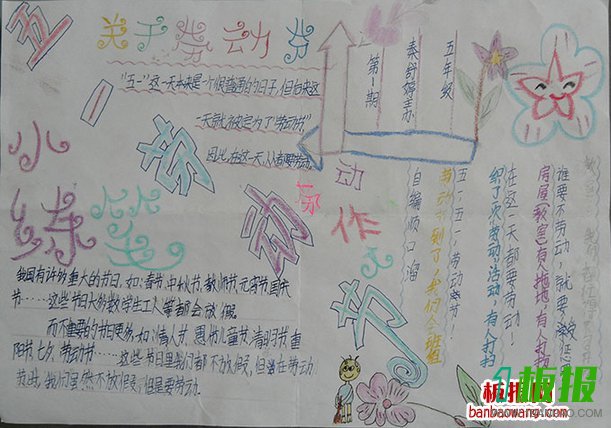 五一劳动节
关于劳动节
"五一"这一天本来是一个很普通的日子,但后来这
一天就被定为了"劳动节"
因此,在这一天,人人都要劳动。
第1期
秦舒婷主办
五年级
小练笔
我国有许多重大的节日,如:春节、中秋节、教师节、元宵节、国庆
节……这些节日大多数学生工人等都会放假
而不重要的节日更多,如:情人节、愚人节、儿童节、清明节、重
阳节、七夕、劳动节……这些节日里我们都不放假,但是在劳动
节时,我们虽然不放假,但是要劳动。
动
作
自编顺口溜
五一五一劳动节!
劳动节到了,我们全班组
织了次劳动活动,有人打扫
在这一天都要劳动!
房屋(教室)有人拖地,有人打扫
谁要不劳动,就要被惩
板报
板报网
banbaowang.com